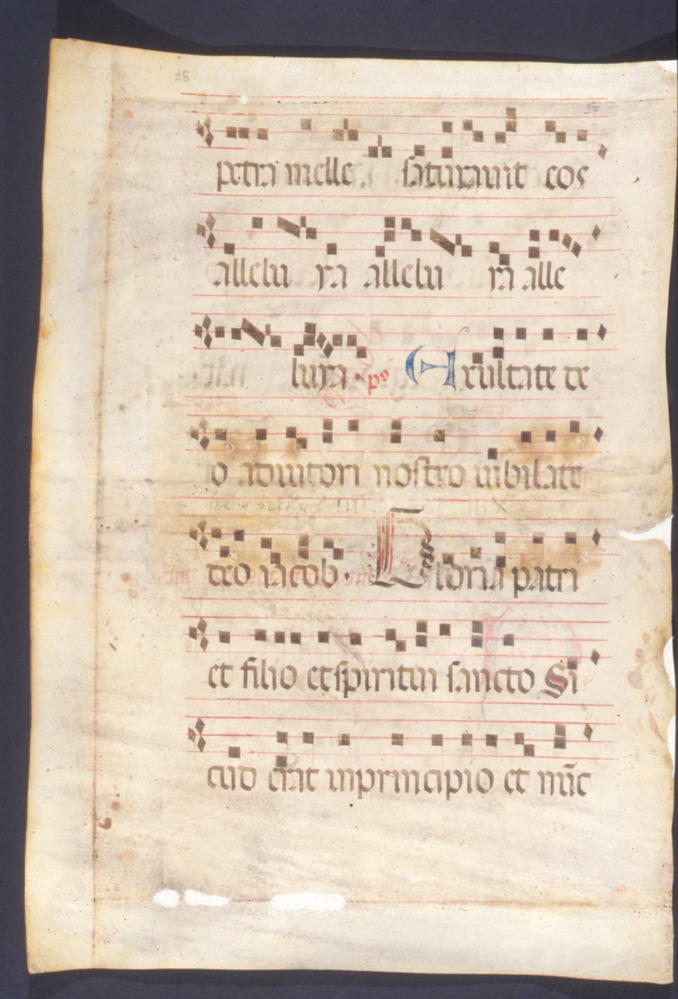 petra melle. saturauit eos
allelu ya allelu ya alle
luya. ps Exultate de
o adiutori nostro iubilate
deo iacob. Gloria patri
et filio et spiritui sancto Si
cud erat in principio et nūc